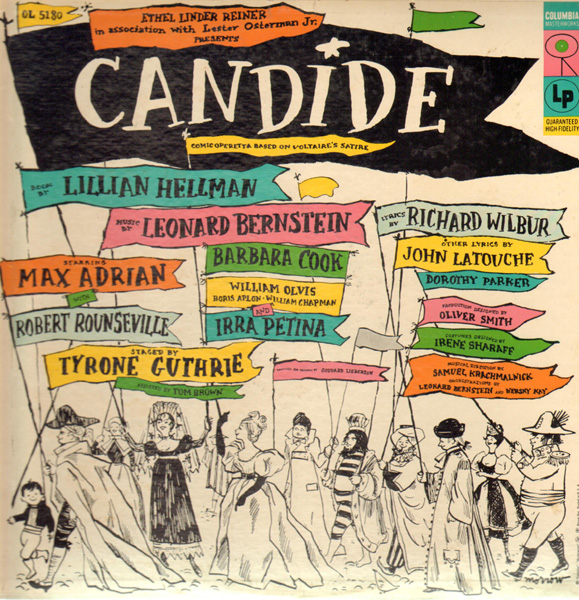 OL 5180
ETHEL LINDER REINER
in association with Lester Osterman Jr.
PRESENTS
COLUMBIA
MASTERWORKS
Lp
GUARANTEED
HIGH FIDELITY
CANDIDE
COMIC OPERETTA BASED ON VOLTAIRE'S SATIRE
BOOK BY LILLIAN HELLMAN
MUSIC BY LEONARD BERNSTEIN
LYRICS BY RICHARD WILBUR
OTHER LYRICS BY
JOHN LATOUCHE
DOROTHY PARKER
STARRING
MAX ADRIAN
WITH
ROBERT ROUNSEVILLE
BARBARA COOK
WILLIAM OLVIS
BORIS APLON · WILLIAM CHAPMAN
AND
IRRA PETINA
PRODUCTION DESIGNED BY
OLIVER SMITH
COSTUMES DESIGNED BY
IRENE SHARAFF
STAGED BY
TYRONE GUTHRIE
ASSISTED BY TOM BROWN
GODDARD LIEBERSON
MUSICAL DIRECTION BY
SAMUEL KRACHMALNICK
ORCHESTRATIONS BY
LEONARD BERNSTEIN AND HERSHY KAY
morrow